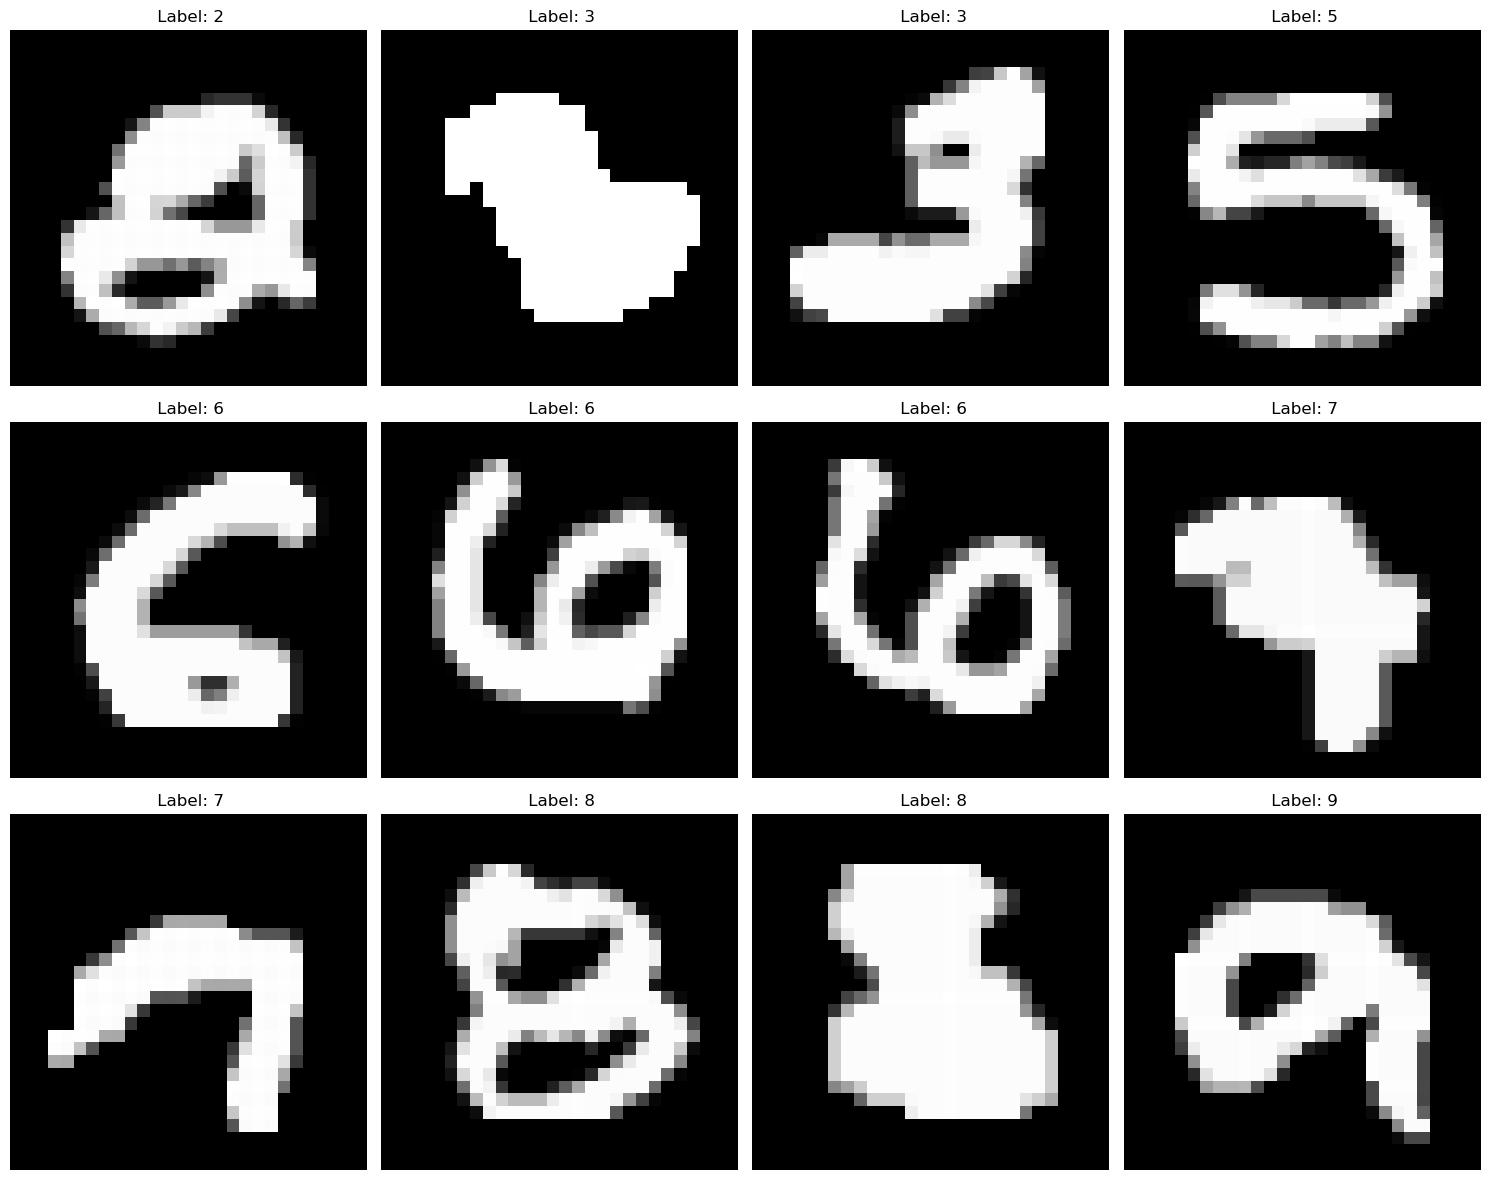 Label: 2 Label: 3 Label: 3 Label: 5
2 3 5
Label: 6 Label: 6 Label: 6 Label: 7
6 6 6 7
Label: 7 Label: 8 Label: 8 Label: 9
7 8 8 9